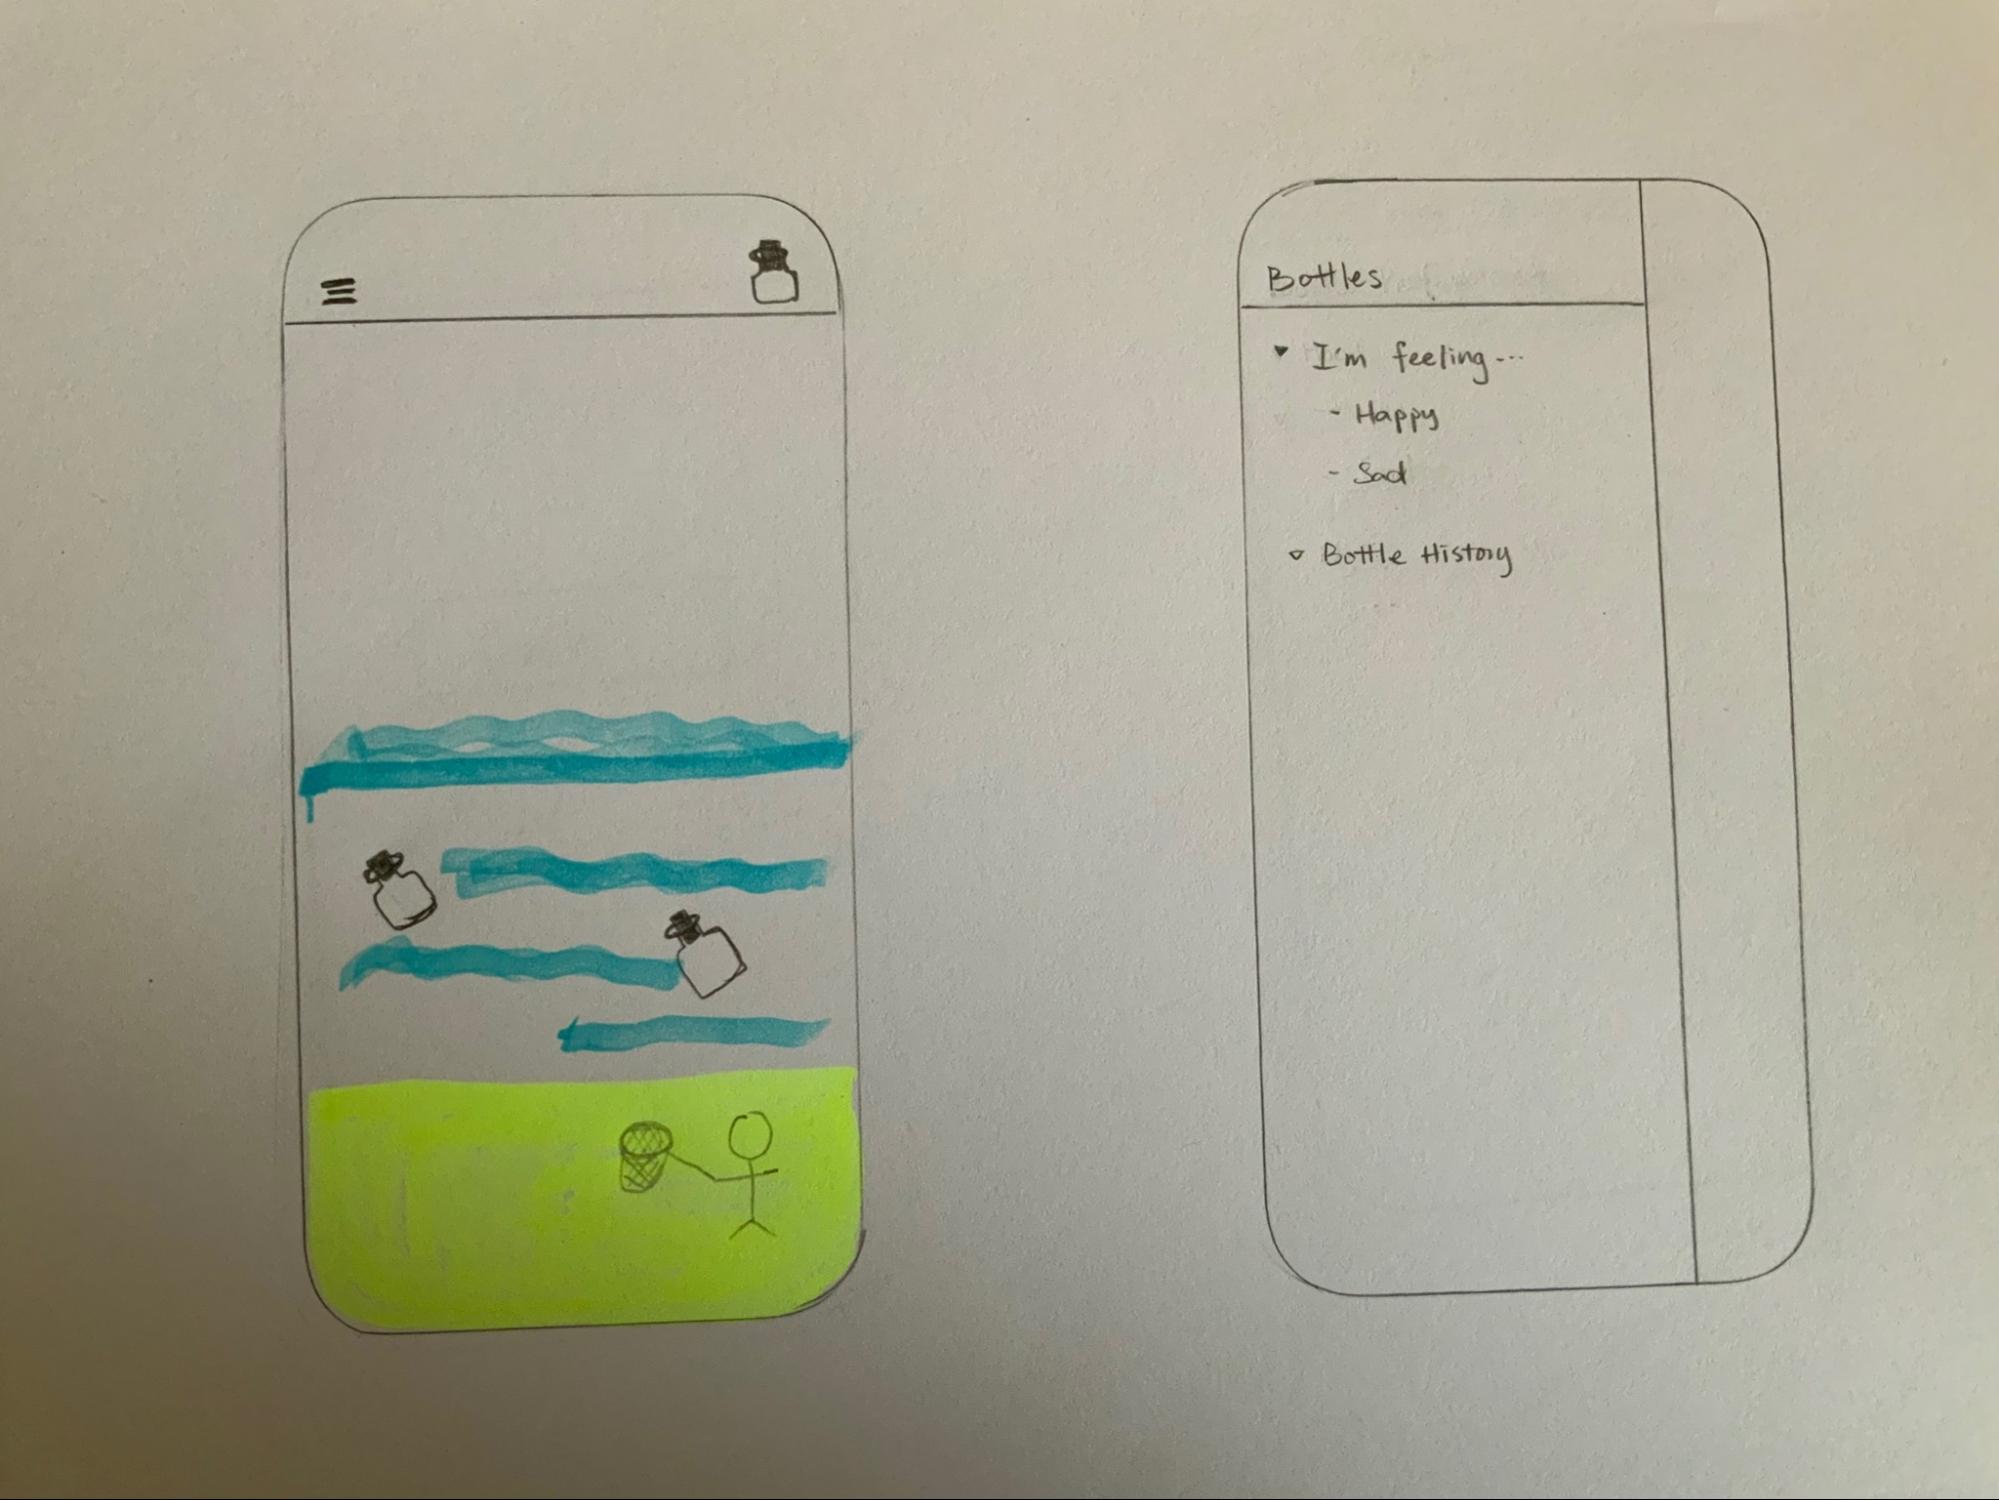 Bottles
▾ I'm feeling...
- Happy
- Sad
▿ Bottle History